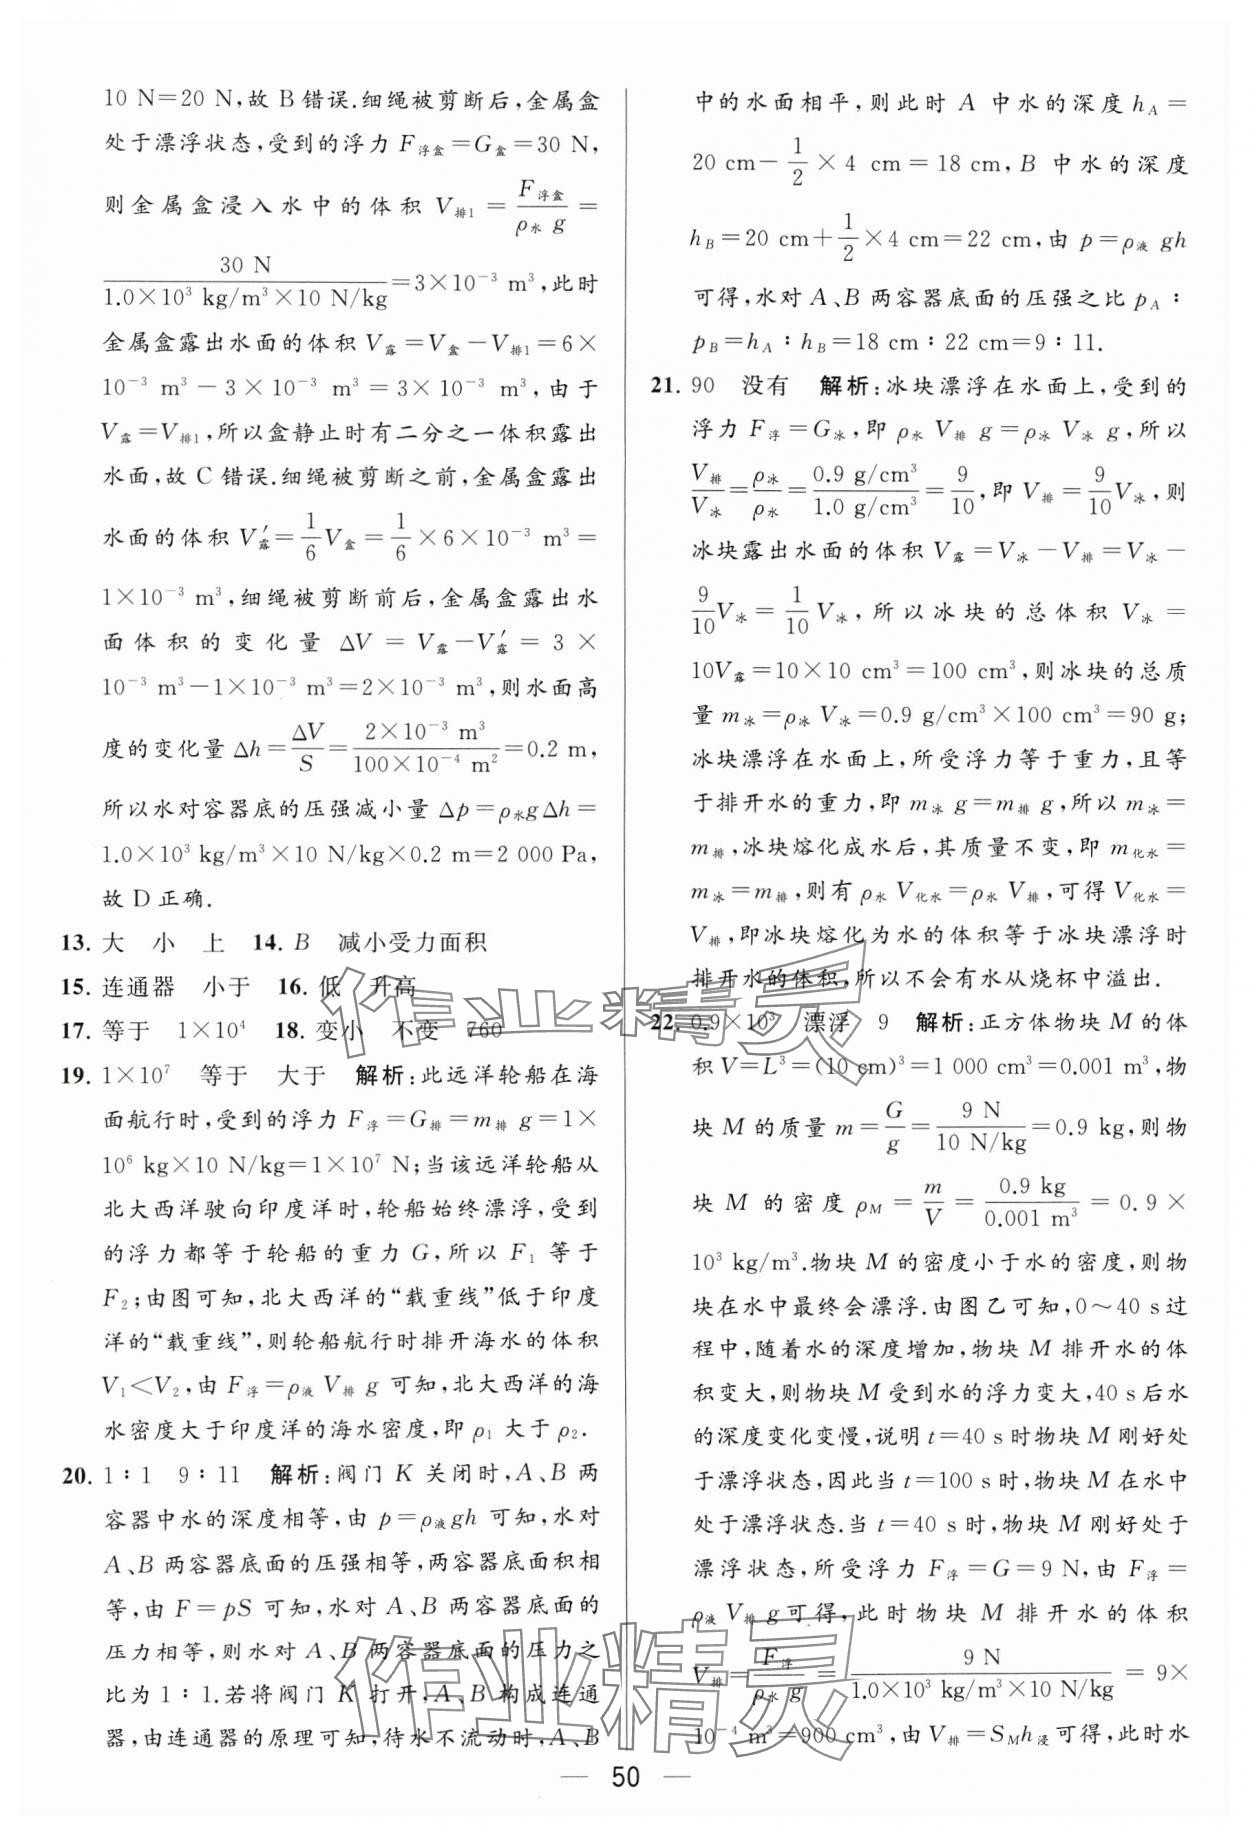 10 N=20 N,故 B 错误.细绳被剪断后,金属盒
处于漂浮状态,受到的浮力 F浮盒=G盒=30 N,
则金属盒浸入水中的体积 V排1 = F浮盒/(ρ水 g) =
30 N/(1.0×10³ kg/m³×10 N/kg)=3×10⁻³ m³,此时
金属盒露出水面的体积 V露=V盒-V排1=6×
10⁻³ m³-3×10⁻³ m³=3×10⁻³ m³,由于
V露=V排1,所以盒静止时有二分之一体积露出
水面,故 C 错误.细绳被剪断之前,金属盒露出
水面的体积 V′露=1/6 V盒=1/6×6×10⁻³ m³=
1×10⁻³ m³,细绳被剪断前后,金属盒露出水
面体积的变化量 ΔV = V露-V′露 = 3 ×
10⁻³ m³-1×10⁻³ m³=2×10⁻³ m³,则水面高
度的变化量 Δh=ΔV/S=(2×10⁻³ m³)/(100×10⁻⁴ m²)=0.2 m,
所以水对容器底的压强减小量 Δp=ρ水gΔh=
1.0×10³ kg/m³×10 N/kg×0.2 m=2 000 Pa,
故 D 正确.
13. 大 小 上 14. B 减小受力面积
15. 连通器 小于 16. 低 升高
17. 等于 1×10⁴ 18. 变小 不变 760
19. 1×10⁷ 等于 大于 解析:此远洋轮船在海
面航行时,受到的浮力 F浮=G排=m排 g=1×
10⁶ kg×10 N/kg=1×10⁷ N;当该远洋轮船从
北大西洋驶向印度洋时,轮船始终漂浮,受到
的浮力都等于轮船的重力 G,所以 F₁ 等于
F₂;由图可知,北大西洋的“载重线”低于印度
洋的“载重线”,则轮船航行时排开海水的体积
V₁<V₂,由 F浮=ρ液 V排 g 可知,北大西洋的海
水密度大于印度洋的海水密度,即 ρ₁ 大于 ρ₂.
20. 1∶1 9∶11 解析:阀门 K 关闭时,A、B 两
容器中水的深度相等,由 p=ρ液gh 可知,水对
A、B 两容器底面的压强相等,两容器底面积相
等,由 F=pS 可知,水对 A、B 两容器底面的
压力相等,则水对 A、B 两容器底面的压力之
比为 1∶1.若将阀门 K 打开,A、B 构成连通
器,由连通器的原理可知,待水不流动时,A、B
中的水面相平,则此时 A 中水的深度 hA =
20 cm-1/2×4 cm=18 cm,B 中水的深度
hB=20 cm+1/2×4 cm=22 cm,由 p=ρ液 gh
可得,水对 A、B 两容器底面的压强之比 pA∶
pB=hA∶hB=18 cm∶22 cm=9∶11.
21. 90 没有 解析:冰块漂浮在水面上,受到的
浮力 F浮=G冰,即 ρ水 V排 g=ρ冰 V冰 g,所以
V排/V冰=ρ冰/ρ水=(0.9 g/cm³)/(1.0 g/cm³)=9/10,即 V排=9/10 V冰,则
冰块露出水面的体积 V露=V冰-V排=V冰-
9/10 V冰=1/10 V冰,所以冰块的总体积 V冰=
10V露=10×10 cm³=100 cm³,则冰块的总质
量 m冰=ρ冰 V冰=0.9 g/cm³×100 cm³=90 g;
冰块漂浮在水面上,所受浮力等于重力,且等
于排开水的重力,即 m冰 g=m排 g,所以 m冰=
m排,冰块熔化成水后,其质量不变,即 m化水=
m冰=m排,则有 ρ水 V化水=ρ水 V排,可得 V化水=
V排,即冰块熔化为水的体积等于冰块漂浮时
排开水的体积,所以不会有水从烧杯中溢出.
22. 0.9×10³ 漂浮 9 解析:正方体物块 M 的体
积 V=L³=(10 cm)³=1 000 cm³=0.001 m³,物
块 M 的质量 m=G/g=9 N/(10 N/kg)=0.9 kg,则物
块 M 的密度 ρM=m/V=0.9 kg/0.001 m³=0.9×
10³ kg/m³.物块 M 的密度小于水的密度,则物
块在水中最终会漂浮.由图乙可知,0～40 s过
程中,随着水的深度增加,物块 M 排开水的体
积变大,则物块 M 受到水的浮力变大,40 s后水
的深度变化变慢,说明 t=40 s时物块 M 刚好处
于漂浮状态,因此当 t=100 s时,物块 M 在水中
处于漂浮状态.当 t=40 s时,物块 M 刚好处于
漂浮状态,所受浮力 F浮=G=9 N,由 F浮=
ρ液 V排 g 可得,此时物块 M 排开水的体积
V排=F浮/(ρ水 g)=9 N/(1.0×10³ kg/m³×10 N/kg)=9×
10⁻⁴ m³=900 cm³,由 V排=SMh浸可得,此时水
作业精灵
作业精灵
50